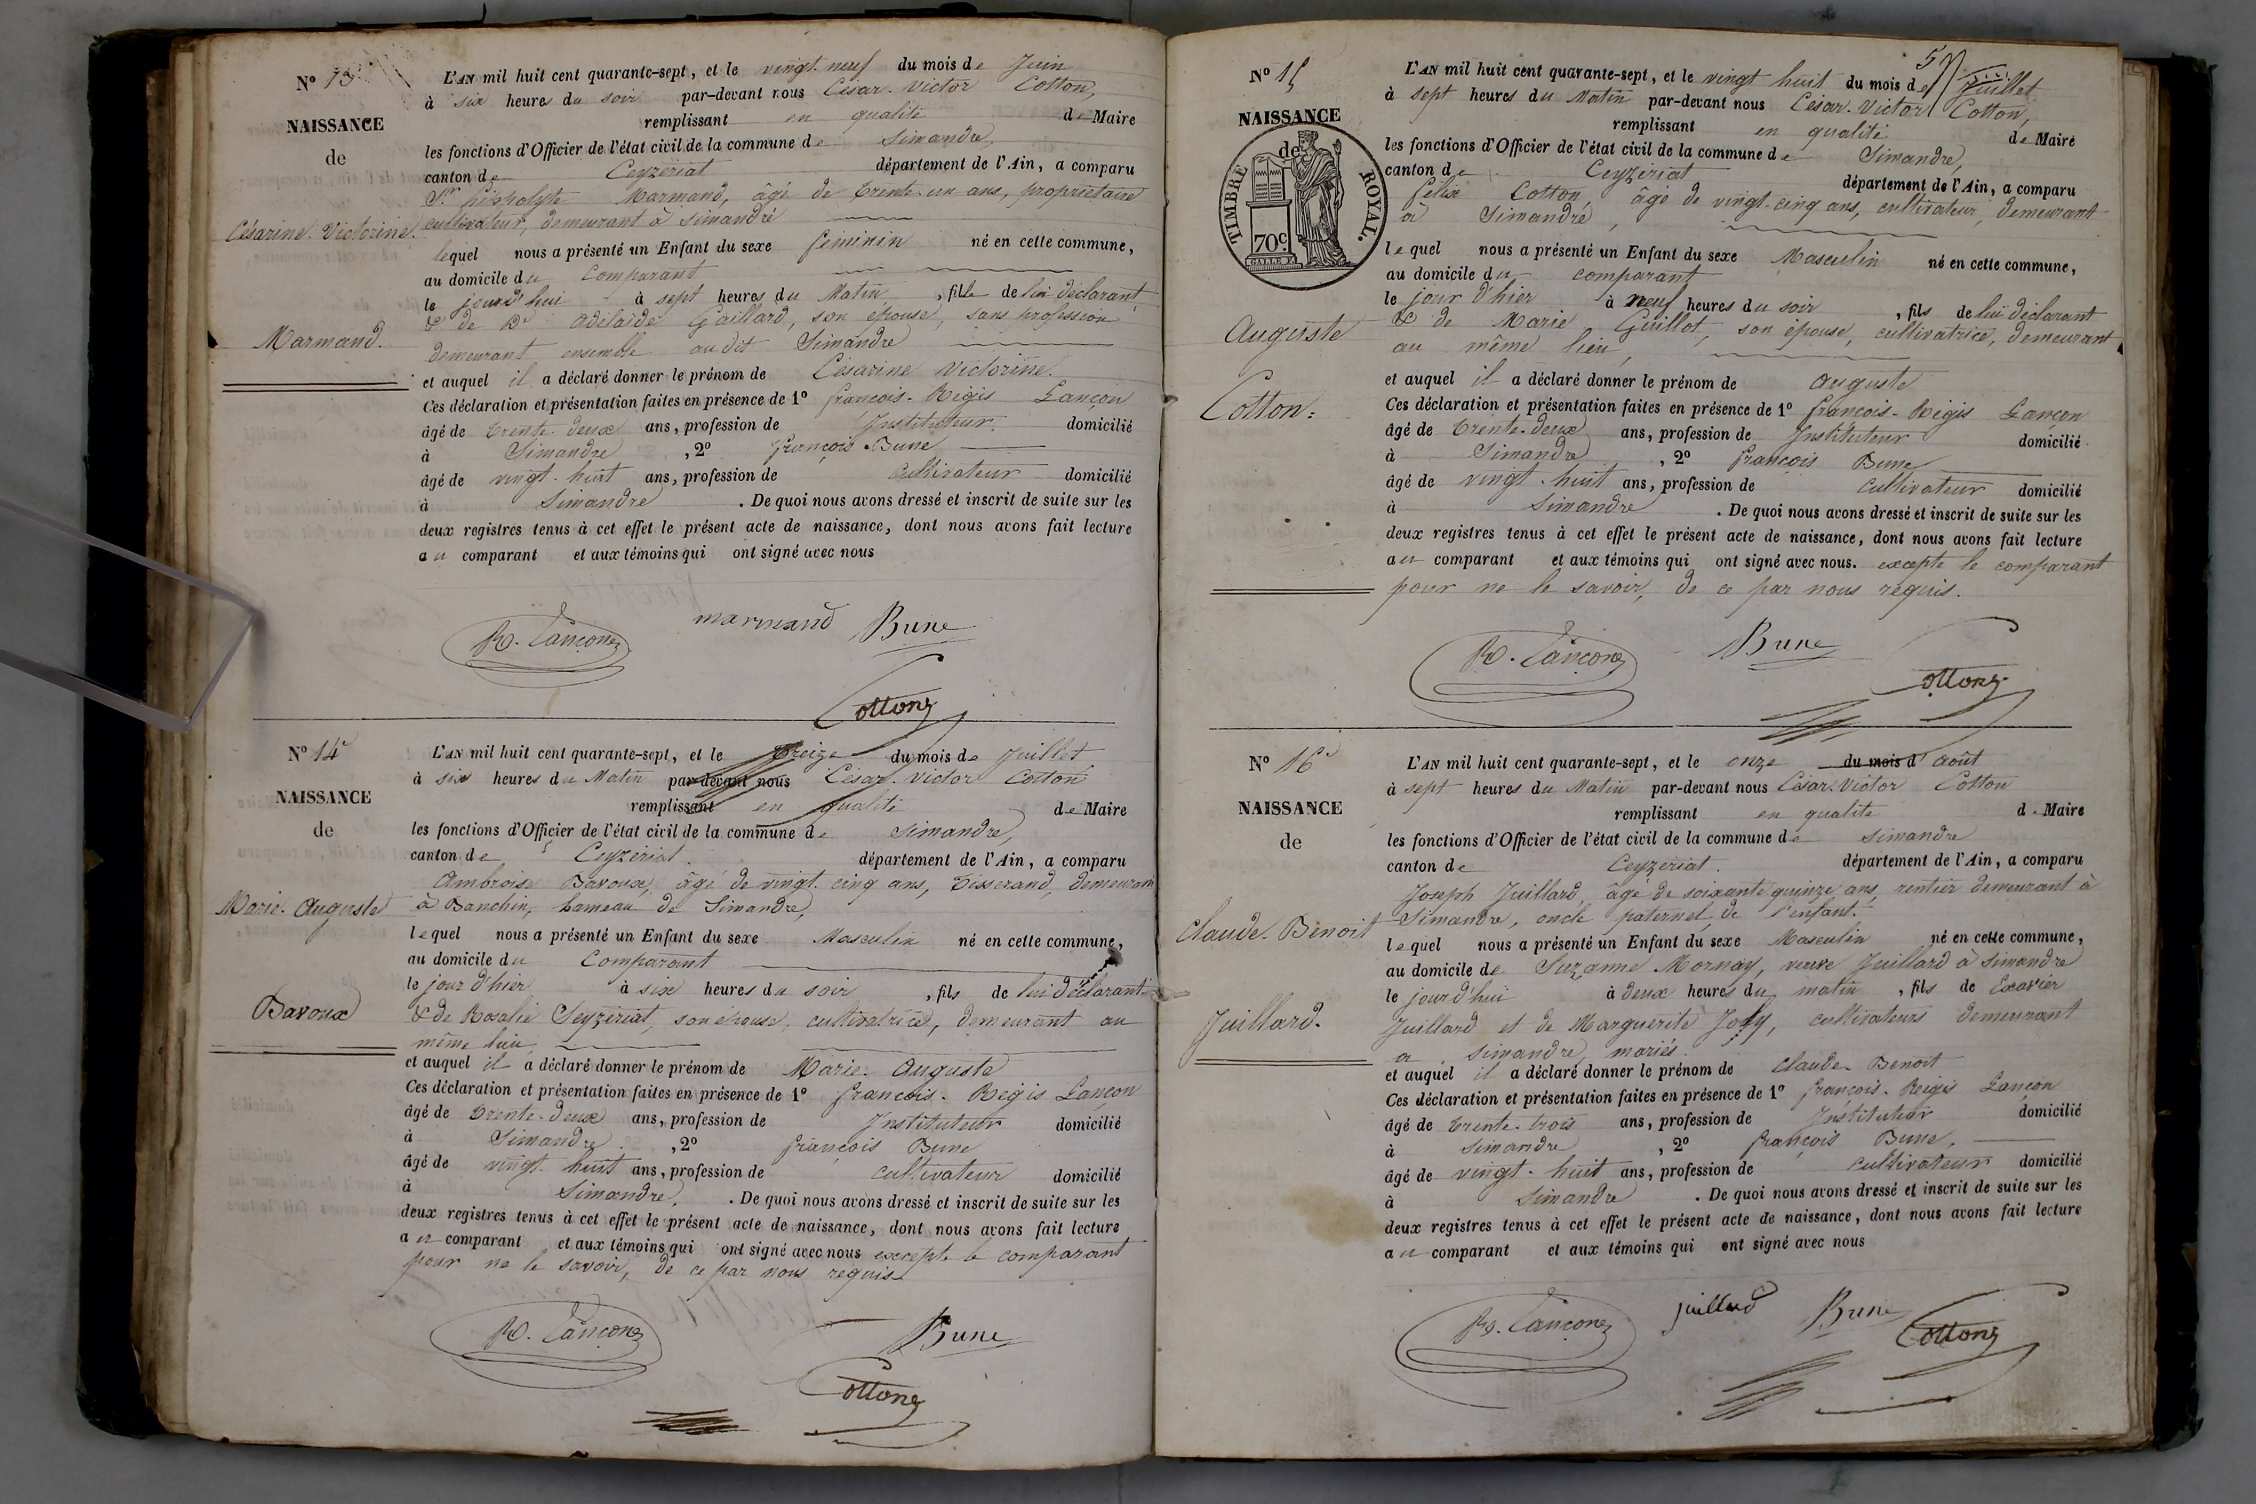 N° 13
NAISSANCE
de
Césarine-Victorine
Marmand.
L'AN mil huit cent quarante-sept, et le vingt-neuf du mois de Juin
à six heures du soir par-devant nous César-Victor Cotton,
remplissant en qualité de Maire
les fonctions d'Officier de l'état civil de la commune de Simandre,
canton de Ceyzériat département de l'Ain, a comparu
Sr hippolyte Marmand, âgé de trente-un ans, propriétaire
cultivateur, demeurant à Simandre
lequel nous a présenté un Enfant du sexe féminin né en cette commune,
au domicile du Comparant
le jourd'hui à sept heures du Matin, fille de lui déclarant
& de De Adélaïde Gaillard, son épouse, sans profession
demeurant ensemble audit Simandre
et auquel il a déclaré donner le prénom de Césarine Victorine.
Ces déclaration et présentation faites en présence de 1° françois-Régis Lançon
âgé de trente-deux ans, profession de Instituteur domicilié
à Simandre, 2° françois Bune
âgé de vingt-huit ans, profession de cultivateur domicilié
à Simandre. De quoi nous avons dressé et inscrit de suite sur les
deux registres tenus à cet effet le présent acte de naissance, dont nous avons fait lecture
au comparant et aux témoins qui ont signé avec nous
marmand Bune
R. Lançon
Cotton
N° 14
NAISSANCE
de
Marie-Auguste
Bavoux
L'AN mil huit cent quarante-sept, et le treize du mois de Juillet
à six heures du Matin par-devant nous César-Victor Cotton
remplissant en qualité de Maire
les fonctions d'Officier de l'état civil de la commune de Simandre,
canton de Ceyzériat. département de l'Ain, a comparu
Ambroise Bavoux, âgé de vingt-cinq ans, tisserand, demeurant
à Banchin, hameau de Simandre,
lequel nous a présenté un Enfant du sexe Masculin né en cette commune,
au domicile du Comparant
le jour d'hier à six heures du soir, fils de lui déclarant
& de Rosalie Seyzériat, son épouse, cultivatrice, demeurant au
même lieu,
et auquel il a déclaré donner le prénom de Marie-Auguste
Ces déclaration et présentation faites en présence de 1° françois-Régis Lançon
âgé de trente-deux ans, profession de Instituteur domicilié
à Simandre, 2° françois Bune
âgé de vingt-huit ans, profession de cultivateur domicilié
à Simandre. De quoi nous avons dressé et inscrit de suite sur les
deux registres tenus à cet effet le présent acte de naissance, dont nous avons fait lecture
au comparant et aux témoins qui ont signé avec nous excepté le comparant
pour ne le savoir, de ce par nous requis
R. Lançon Bune
Cotton
N° 15
NAISSANCE
de
TIMBRE ROYAL.
70c.
Auguste
Cotton
L'AN mil huit cent quarante-sept, et le vingt huit du mois de Juillet
à sept heures du Matin par-devant nous César-Victor Cotton,
remplissant en qualité de Maire
les fonctions d'Officier de l'état civil de la commune de Simandre,
canton de Ceyzériat département de l'Ain, a comparu
félix Cotton, âgé de vingt-cinq ans, cultivateur, demeurant
à Simandre,
lequel nous a présenté un Enfant du sexe Masculin né en cette commune,
au domicile du comparant
le jour d'hier à neuf heures du soir, fils de lui déclarant
& de Marie Guillot, son épouse, cultivatrice, demeurant
au même lieu,
et auquel il a déclaré donner le prénom de Auguste
Ces déclaration et présentation faites en présence de 1° françois-Régis Lançon
âgé de trente-deux ans, profession de Instituteur domicilié
à Simandre, 2° françois Bune
âgé de vingt-huit ans, profession de cultivateur domicilié
à Simandre. De quoi nous avons dressé et inscrit de suite sur les
deux registres tenus à cet effet le présent acte de naissance, dont nous avons fait lecture
au comparant et aux témoins qui ont signé avec nous. excepté le comparant
pour ne le savoir, de ce par nous requis.
R. Lançon Bune
Cotton
N° 16
NAISSANCE
de
Claude-Benoit
Juillard.
L'AN mil huit cent quarante-sept, et le onze du mois d'août
à sept heures du Matin par-devant nous César-Victor Cotton
remplissant en qualité de Maire
les fonctions d'Officier de l'état civil de la commune de Simandre
canton de Ceyzériat. département de l'Ain, a comparu
Joseph Juillard, âgé de soixante quinze ans, rentier demeurant à
Simandre, oncle paternel de l'enfant.
lequel nous a présenté un Enfant du sexe Masculin né en cette commune,
au domicile de Suzanne Mornay, veuve Juillard à Simandre
le jourd'hui à deux heures du matin, fils de Exavier
Juillard et de Marguerite Joly, cultivateurs demeurant
à Simandre, mariés.
et auquel il a déclaré donner le prénom de Claude-Benoit
Ces déclaration et présentation faites en présence de 1° françois-Régis Lançon
âgé de trente-trois ans, profession de Instituteur domicilié
à Simandre, 2° françois Bune.
âgé de vingt-huit ans, profession de cultivateur domicilié
à Simandre. De quoi nous avons dressé et inscrit de suite sur les
deux registres tenus à cet effet le présent acte de naissance, dont nous avons fait lecture
au comparant et aux témoins qui ont signé avec nous
R. Lançon juillard Bune
Cotton